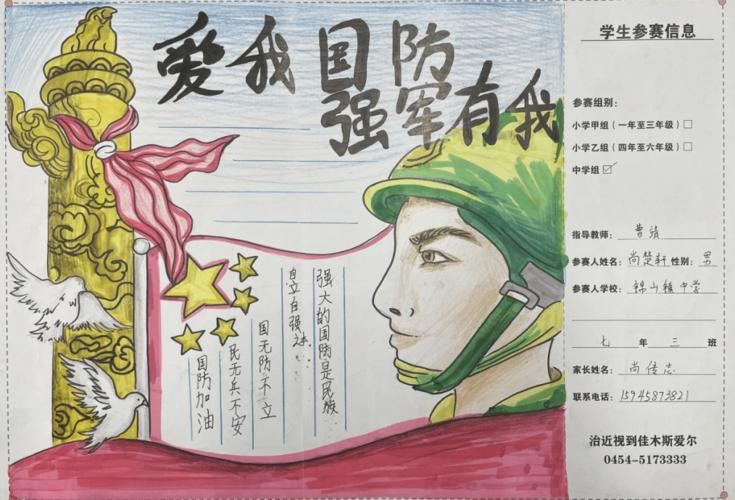 爱我国防
强军有我
强大的国防是民族
自立自强之本
国无防不立
民无兵不安
国防加油
学生参赛信息
参赛组别：
小学甲组（一年至三年级）□
小学乙组（四年至六年级）□
中学组☑
指导教师：曹靖
参赛人姓名：尚楚轩 性别：男
参赛人学校：锦山镇中学
七 年 三 班
家长姓名：尚传志
联系电话：15945873821
治近视到佳木斯爱尔
0454-5173333